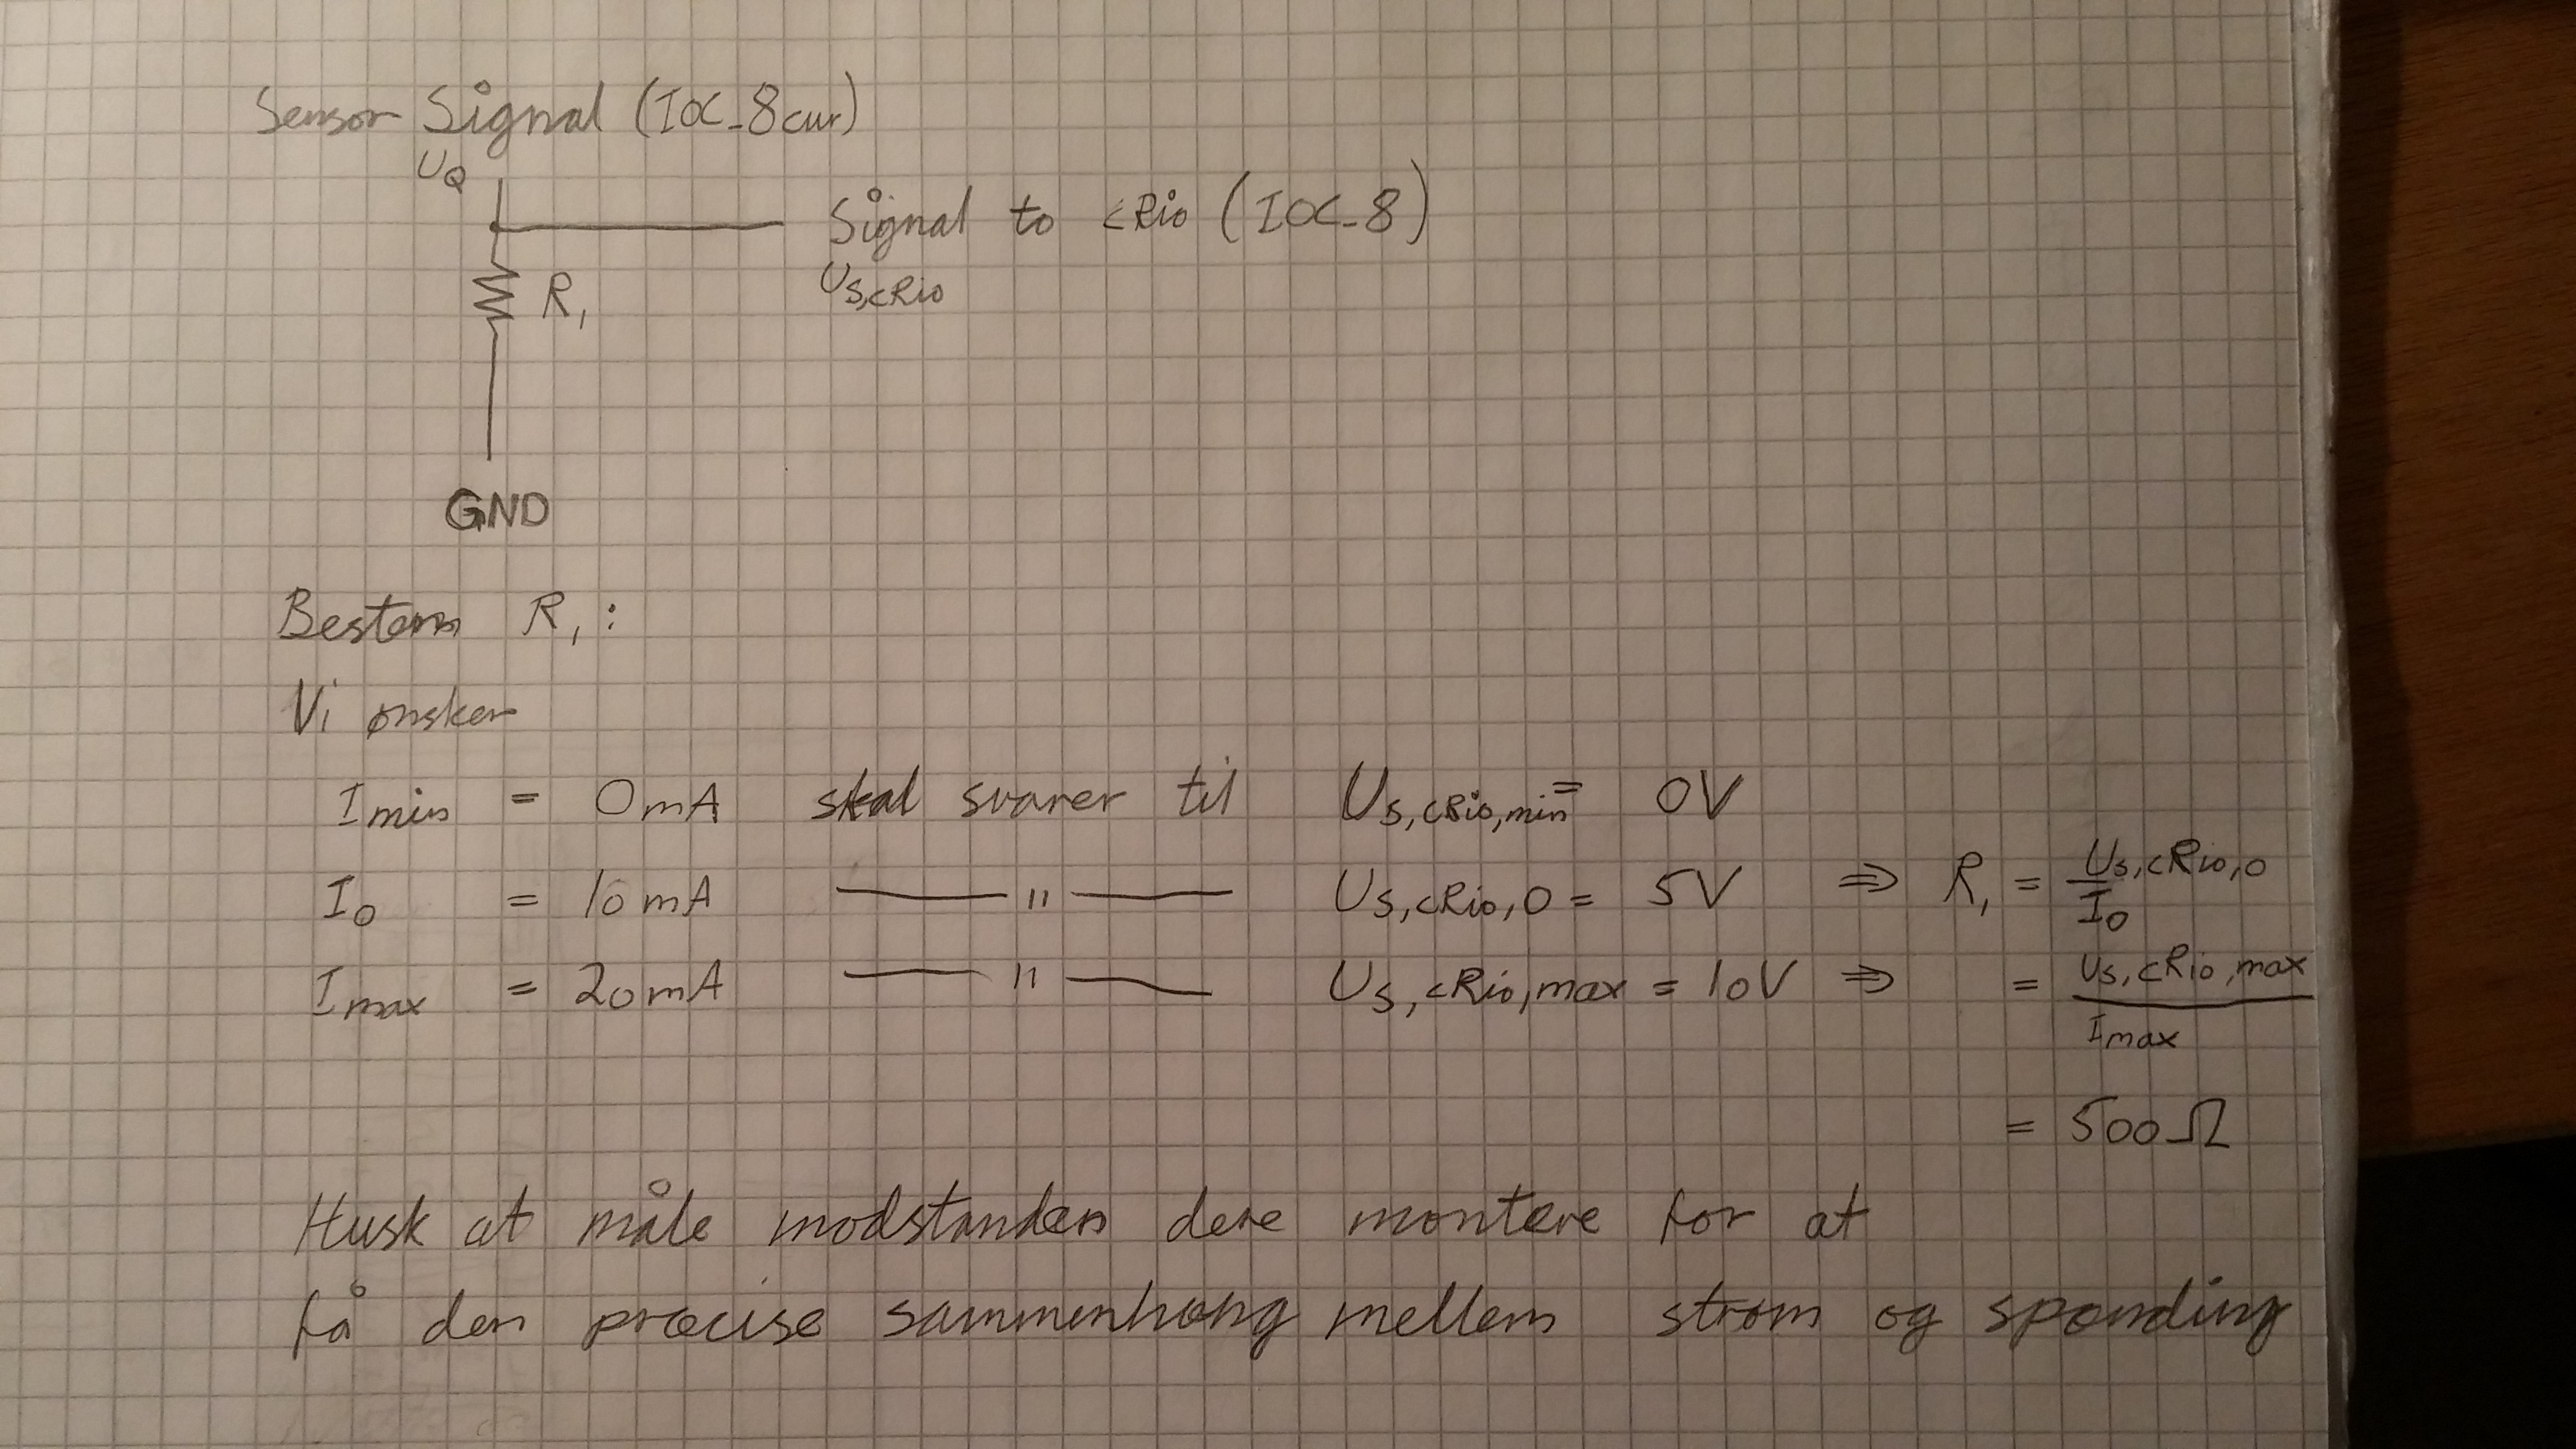 Sensor Signal (IOC_8cur)
U_Q
Signal to cRio (IOC_8)
U_S,cRio
R_1
GND
Bestem R_1:
Vi ønsker
I_min = 0mA skal svarer til U_S,cRio,min = 0V
I_0 = 10mA — " — U_S,cRio,0 = 5V ⇒ R_1 = U_S,cRio,0 / I_0
I_max = 20mA — " — U_S,cRio,max = 10V ⇒ = U_S,cRio,max / I_max
= 500Ω
Husk at måle modstanden dere montere for at
få den præcise sammenhæng mellem strøm og spænding